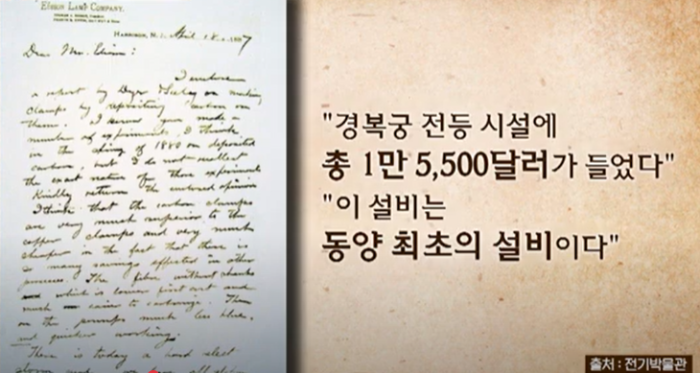 EDISON LAMP COMPANY.
HARRISON, N. J., April 18 1887
Dear Mr. Edison:
I enclose
a report by Dyer & Seeley on making
clamps by depositing carbon on
them. I know you made a
number of experiments I think
in the spring of 1880 on deposited
carbon, but I do not recollect
the exact nature of those experiments
Kindly return the enclosed opinion
I think that the carbon clamps
are very much superior to the
copper clamps and very much
cheaper in the fact that there is
so many savings effected in other
process. The fibre without shanks
which is lower first cost and
much easier to carbonize. Then
on the pumps much less blue,
and quicker working.
There is today a hard
"경복궁 전등 시설에
총 1만 5,500달러가 들었다"
"이 설비는
동양 최초의 설비이다"
출처 : 전기박물관